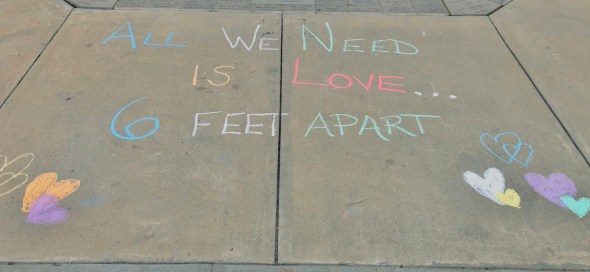 All We Need
is Love...
6 Feet Apart